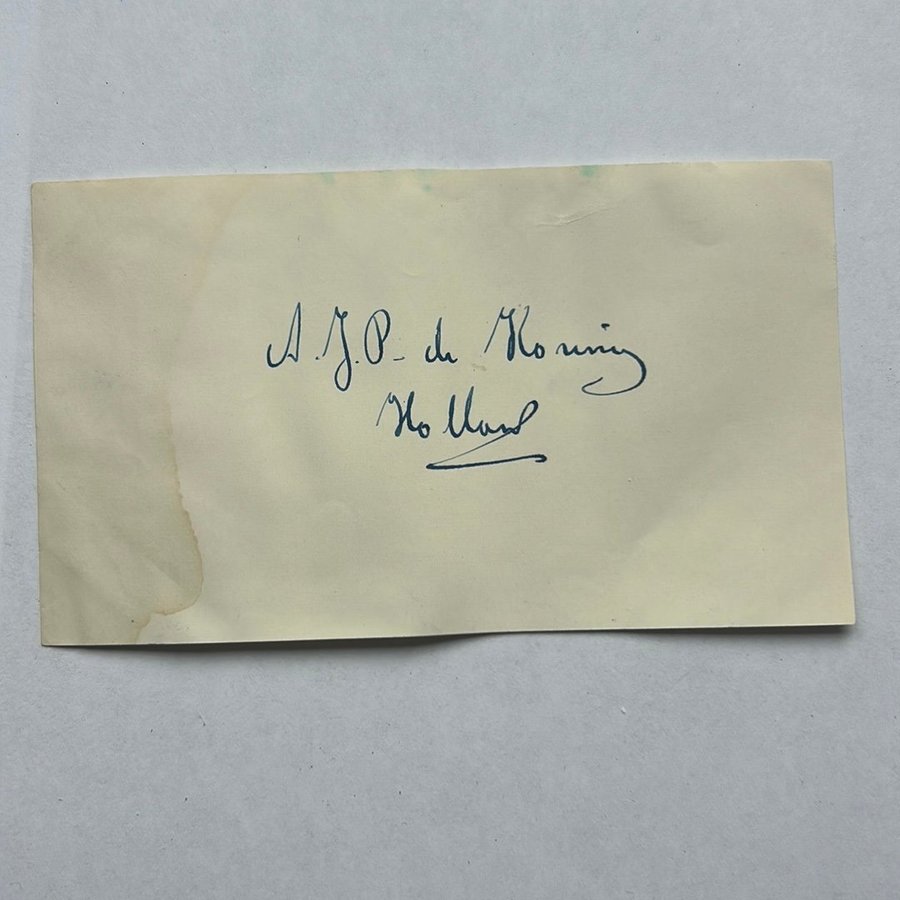 A.J.P. de Koning
Holland